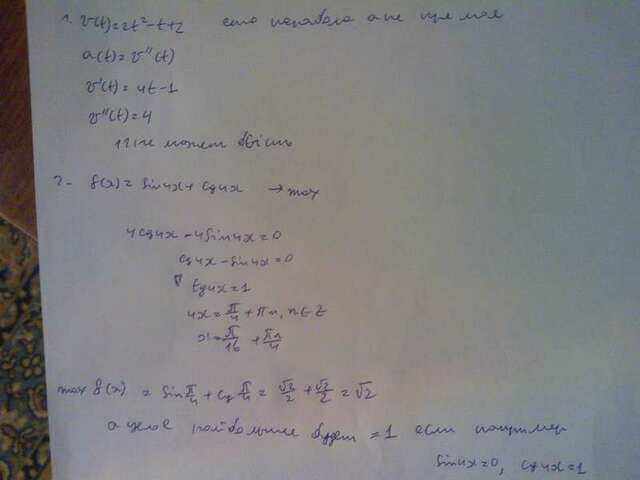 1. v(t)=2t²-t+2 это парабола а не прямая
a(t)=v''(t)
v'(t)=4t-1
v''(t)=4
не может быть
2- f(x)=sin4x+cos4x → max
4cos4x-4sin4x=0
cos4x-sin4x=0
tg4x=1
4x=π/4+πn, n∈Z
x=π/16+πn/4
max f(x) = sin π/4 + cos π/4 = √2/2 + √2/2 = √2
а целое наибольшее будет =1 если например
sin4x=0, cos4x=1